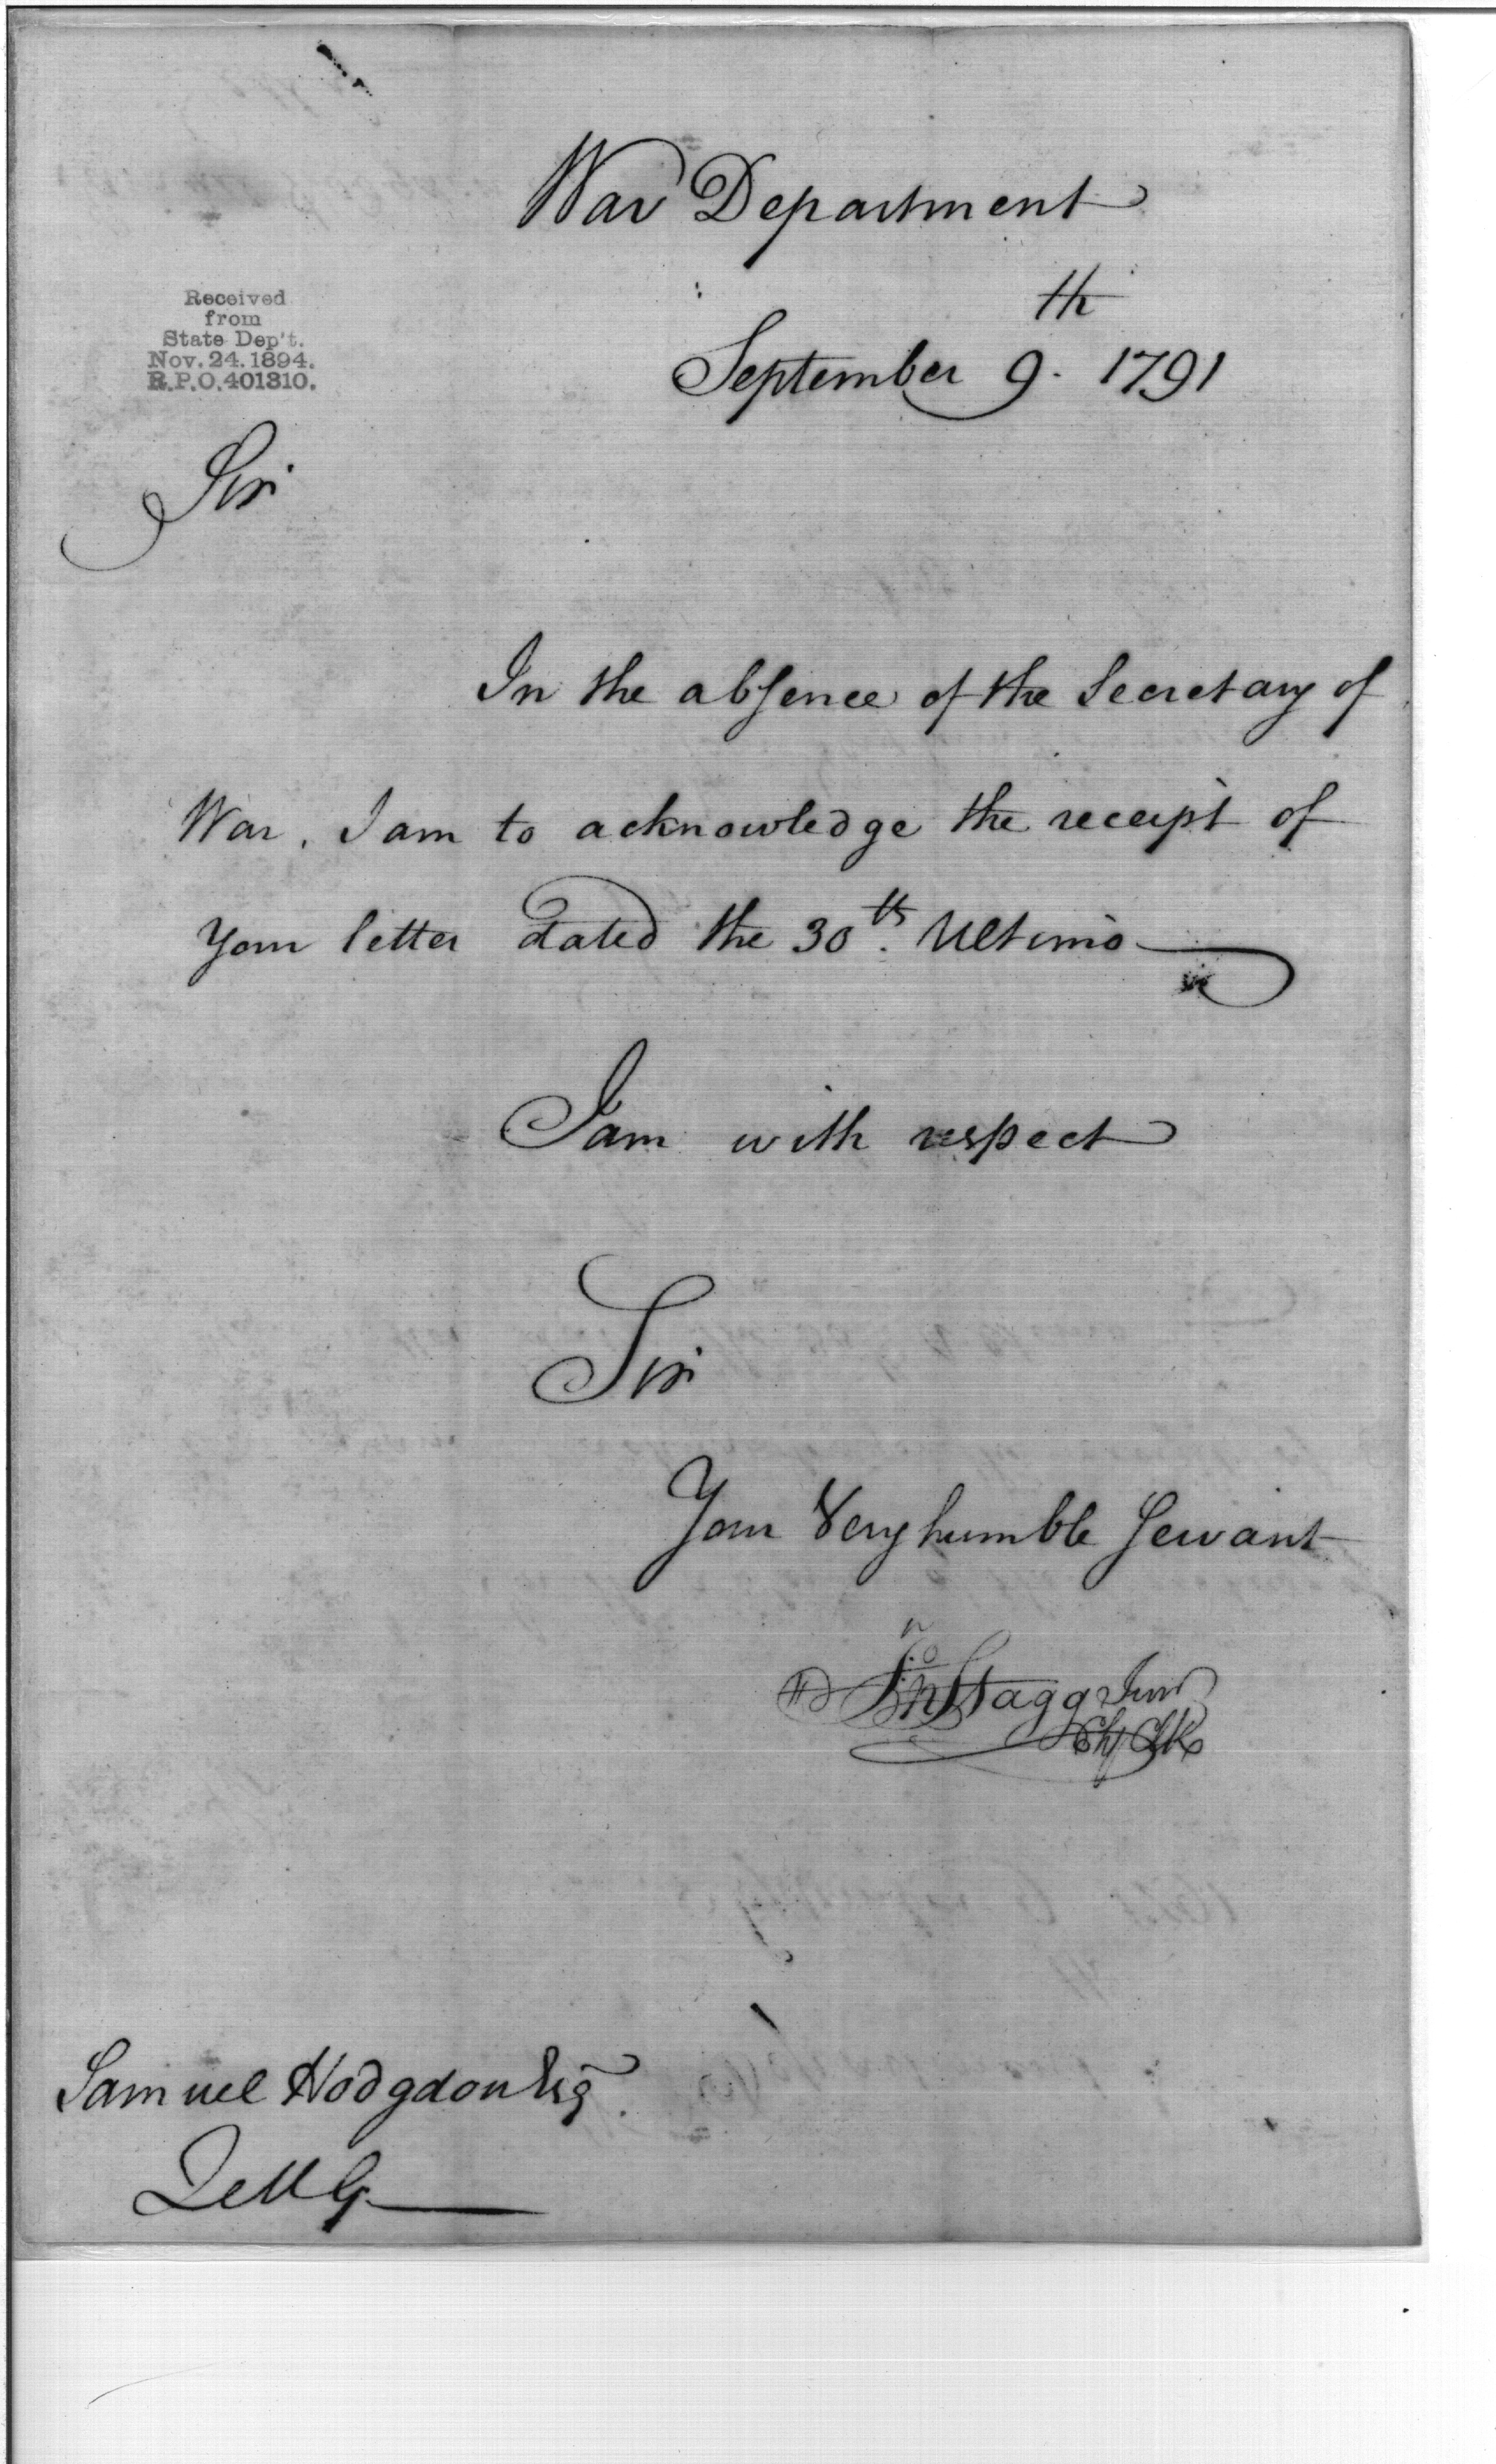 War Department
September 9th. 1791
Received
from
State Dep't.
Nov. 24. 1894.
R.P.O. 401310.
Sir
In the absence of the Secretary of
War, I am to acknowledge the receipt of
Your letter dated the 30th. Ultimo
I am with respect
Sir
Your Very humble Servant
Jno Stagg Junr
Chf Clk
Samuel Hodgdon Esq.
QMG